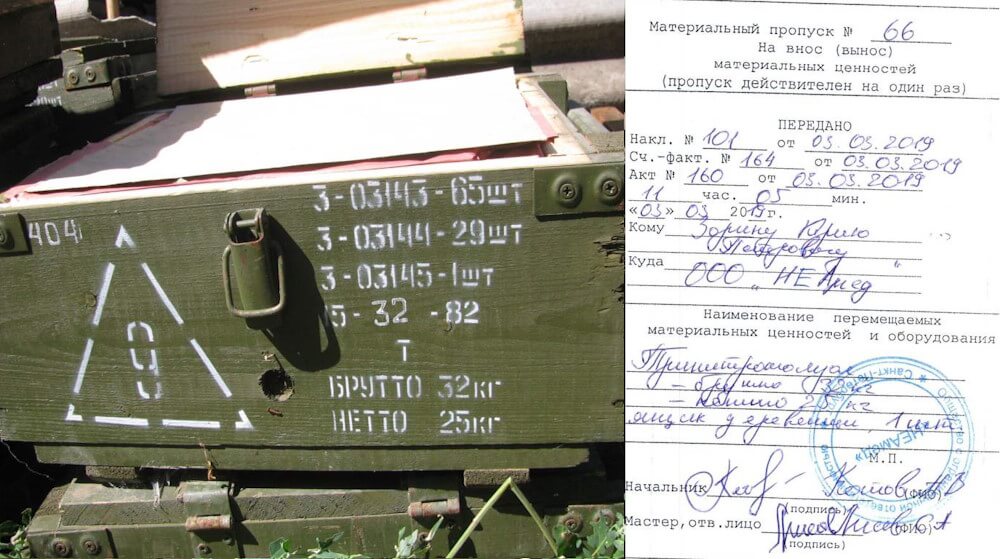 3-03143-65шт
3-03144-29шт
3-03145-1шт
404
5-32-82
9
Т
БРУТТО 32кг
НЕТТО 25кг
Материальный пропуск № 66
На внос (вынос)
материальных ценностей
(пропуск действителен на один раз)
ПЕРЕДАНО
Накл. № 101 от 03.03.2019
Сч.-факт. № 164 от 03.03.2019
Акт № 160 от 03.03.2019
11 час. 05 мин.
«03» 03 2019г.
Кому Зорину Юрию
Петровичу
Куда
ООО „НЕВред
Наименование перемещаемых
материальных ценностей и оборудования
Тринитротолуол
- брутто 32 кг
- нетто кг
ящик деревянный, 1 шт
М.П.
Начальник Котов (ФИО)
(подпись)
Мастер,отв.лицо (ФИО)
(подпись)